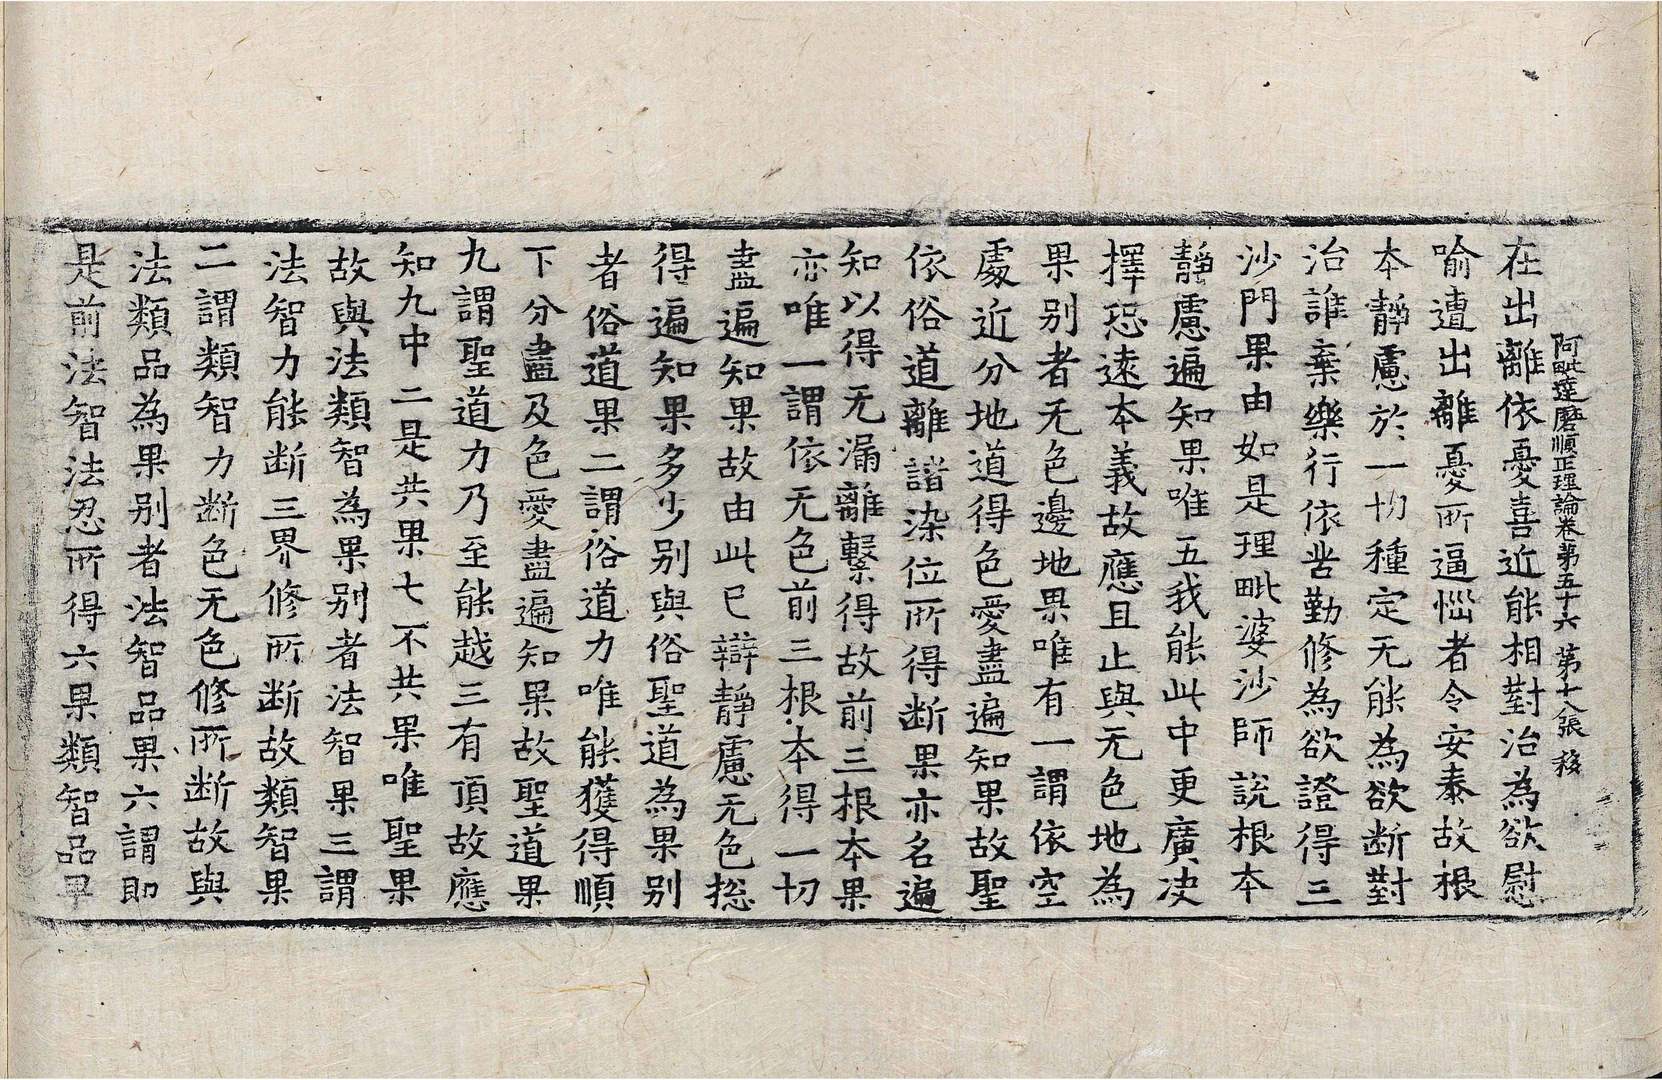 阿毗達磨順正理論卷第五十六　第十八張　移
在出離依憂喜近能相對治為欲慰
喻遭出離憂所逼惱者令安泰故根
本靜慮於一切種定无能為欲斷對
治誰棄樂行依苦勤修為欲證得三
沙門果由如是理毗婆沙師說根本
靜慮遍知果唯五我能此中更廣決
擇恐遠本義故應且止與无色地為
果別者无色邊地果唯有一謂依空
處近分地道得色愛盡遍知果故聖
依俗道離諸染位所得斷果亦名遍
知以得无漏離繫得故前三根本果
亦唯一謂依无色前三根本得一切
盡遍知果故由此已辯靜慮无色捴
得遍知果多少別與俗聖道為果別
者俗道果二謂俗道力唯能獲得順
下分盡及色愛盡遍知果故聖道果
九謂聖道力乃至能越三有頂故應
知九中二是共果七不共果唯聖果
故與法類智為果別者法智果三謂
法智力能斷三界修所斷故類智果
二謂類智力斷色无色修所斷故與
法類品為果別者法智品果六謂即
是前法智法忍所得六果類智品